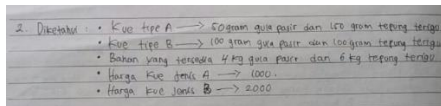 2. Diketahui : • Kue tipe A → 50 gram gula pasir dan 150 gram tepung terigu
• Kue tipe B → 100 gram gula pasir dan 100 gram tepung terigu
• Bahan yang tersedia 4 kg gula pasir dan 6 kg tepung terigu
• Harga kue jenis A → 1000.
• Harga kue jenis B → 2000